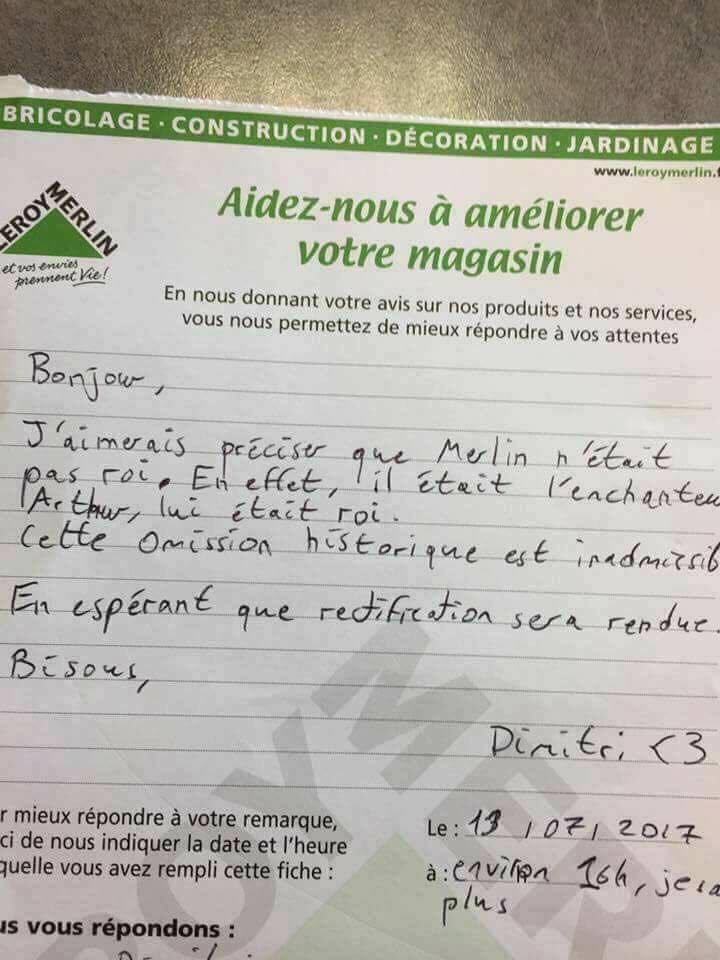 BRICOLAGE · CONSTRUCTION · DÉCORATION · JARDINAGE
www.leroymerlin.f
LEROY MERLIN
et vos envies
prennent Vie!
Aidez-nous à améliorer
votre magasin
En nous donnant votre avis sur nos produits et nos services,
vous nous permettez de mieux répondre à vos attentes
Bonjour,
J'aimerais préciser que Merlin n'était
pas roi. En effet, il était l'enchanteu
Arthur, lui était roi.
Cette omission historique est inadmissib
En espérant que rectification sera rendue.
Bisous,
Dimitri <3
r mieux répondre à votre remarque,
ci de nous indiquer la date et l'heure
quelle vous avez rempli cette fiche :
Le : 13 / 07 / 2017
à : environ 16h, jesa
plus
us vous répondons :